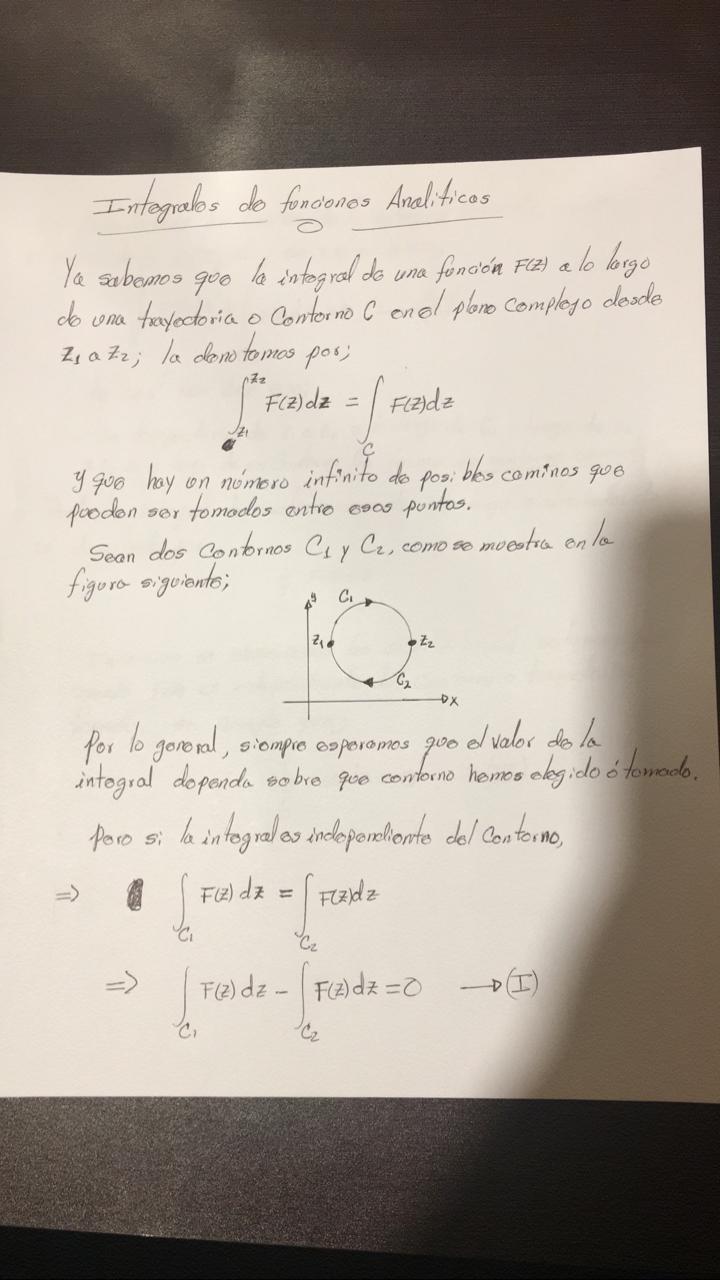 Integrales de funciones Analíticas
Ya sabemos que la integral de una función F(z) a lo largo
de una trayectoria o Contorno C en el plano complejo desde
z₁ a z₂; la denotamos por;
∫_{z₁}^{z₂} F(z)dz = ∫_C F(z)dz
y que hay un número infinito de posibles caminos que
pueden ser tomados entre esos puntos.
Sean dos Contornos C₁ y C₂, como se muestra en la
figura siguiente;
y C₁
z₁ z₂
C₂
x
Por lo general, siempre esperamos que el valor de la
integral dependa sobre que contorno hemos elegido ó tomado.
Pero si la integral es independiente del Contorno,
=> ∫_{C₁} F(z)dz = ∫_{C₂} F(z)dz
=> ∫_{C₁} F(z)dz - ∫_{C₂} F(z)dz = 0 → (I)